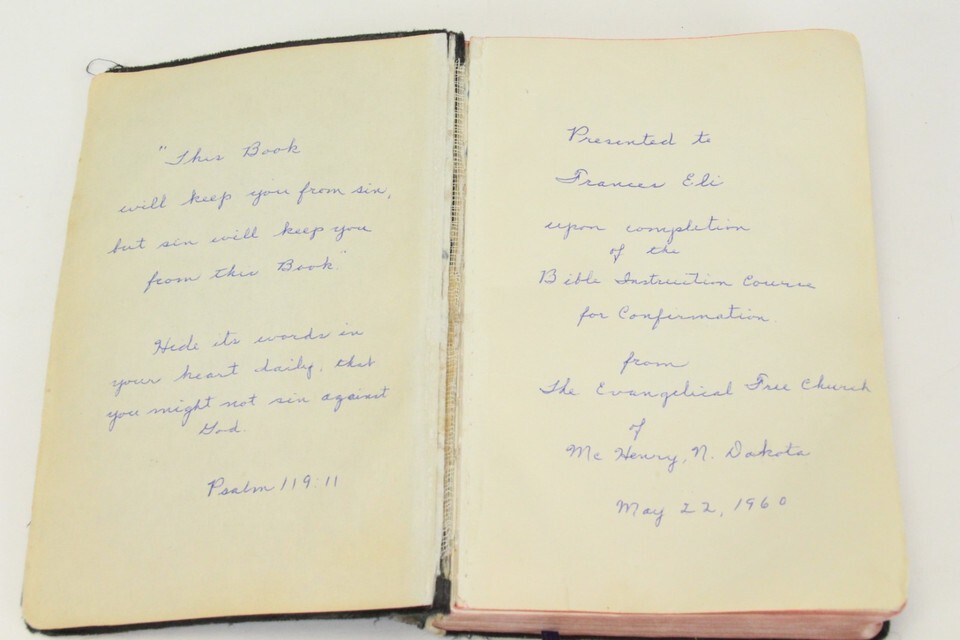 "This Book
will keep you from sin,
but sin will keep you
from this Book"
Hide its words in
your heart daily, that
you might not sin against
God.
Psalm 119:11
Presented to
Frances Eli
upon completion
of the
Bible Instruction Course
for Confirmation
from
The Evangelical Free Church
of
Mc Henry, N. Dakota
May 22, 1960